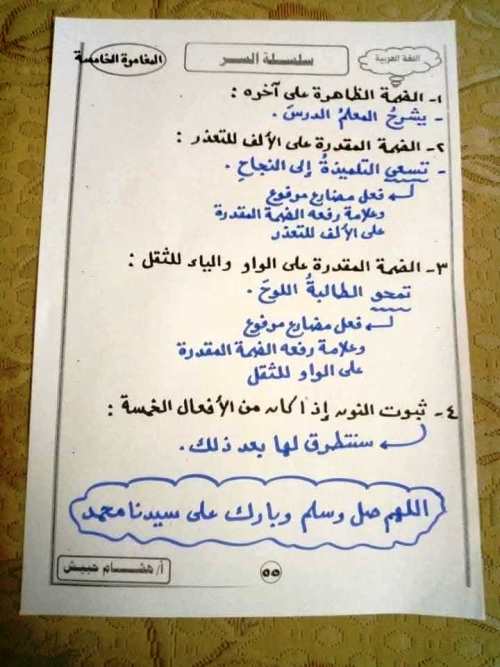 اللغة العربية
سلسلة السر
المغامرة الخامسة
١- الضمة الظاهرة على آخره :
- يشرحُ المعلمُ الدرسَ .
٢- الضمة المقدرة على الألف للتعذر :
- تسعى التلميذةُ إلى النجاحِ .
فعل مضارع مرفوع
وعلامة رفعه الضمة المقدرة
على الألف للتعذر
٣- الضمة المقدرة على الواو والياء للثقل :
تمحو الطالبةُ اللوحَ .
فعل مضارع مرفوع
وعلامة رفعه الضمة المقدرة
على الواو للثقل
٤- ثبوت النون إذا كان من الأفعال الخمسة :
سنتطرق لها بعد ذلك.
اللهم صل وسلم وبارك على سيدنا محمد
٥٥
أ/ هشام حبيش